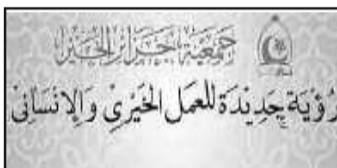 جمعية جزائر الخير
رُؤيَة جَدِيْدَة للعمل الخَيْرِي وَالإنسَانِي